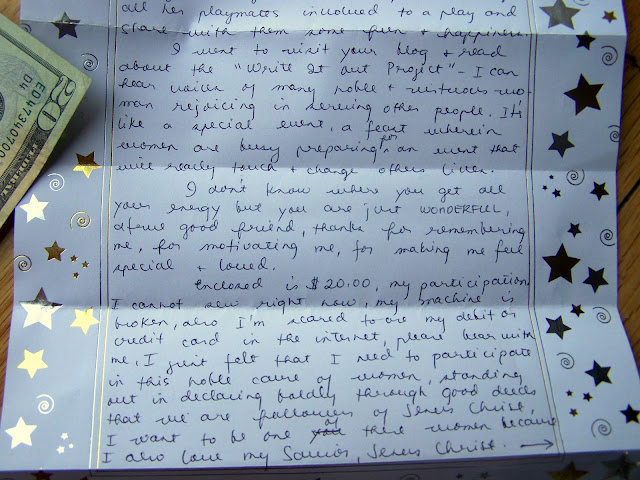 all her playmates involved to a play and
share with them some fun + happiness.
I went to visit your blog + read
about the "Write It Out Project" - I can
hear voices of many noble + virtuous wo-
man rejoicing in serving other people. It's
like a special event, a feast wherein
women are busy preparing for an event that
will really touch + change others lives.
I don't know where you get all
your energy but you are just WONDERFUL,
a true good friend, thanks for remembering
me, for motivating me, for making me feel
special + loved.
Enclosed is $20.00, my participation
I cannot sew right now, my machine is
broken, also I'm scared to use my debit or
credit card in the internet, please bear with
me, I just felt that I need to participate
in this noble cause of women, standing
out in declaring boldly through good deeds
that we are followers of Jesus Christ,
I want to be one of these women because
I also love my Savior, Jesus Christ. →